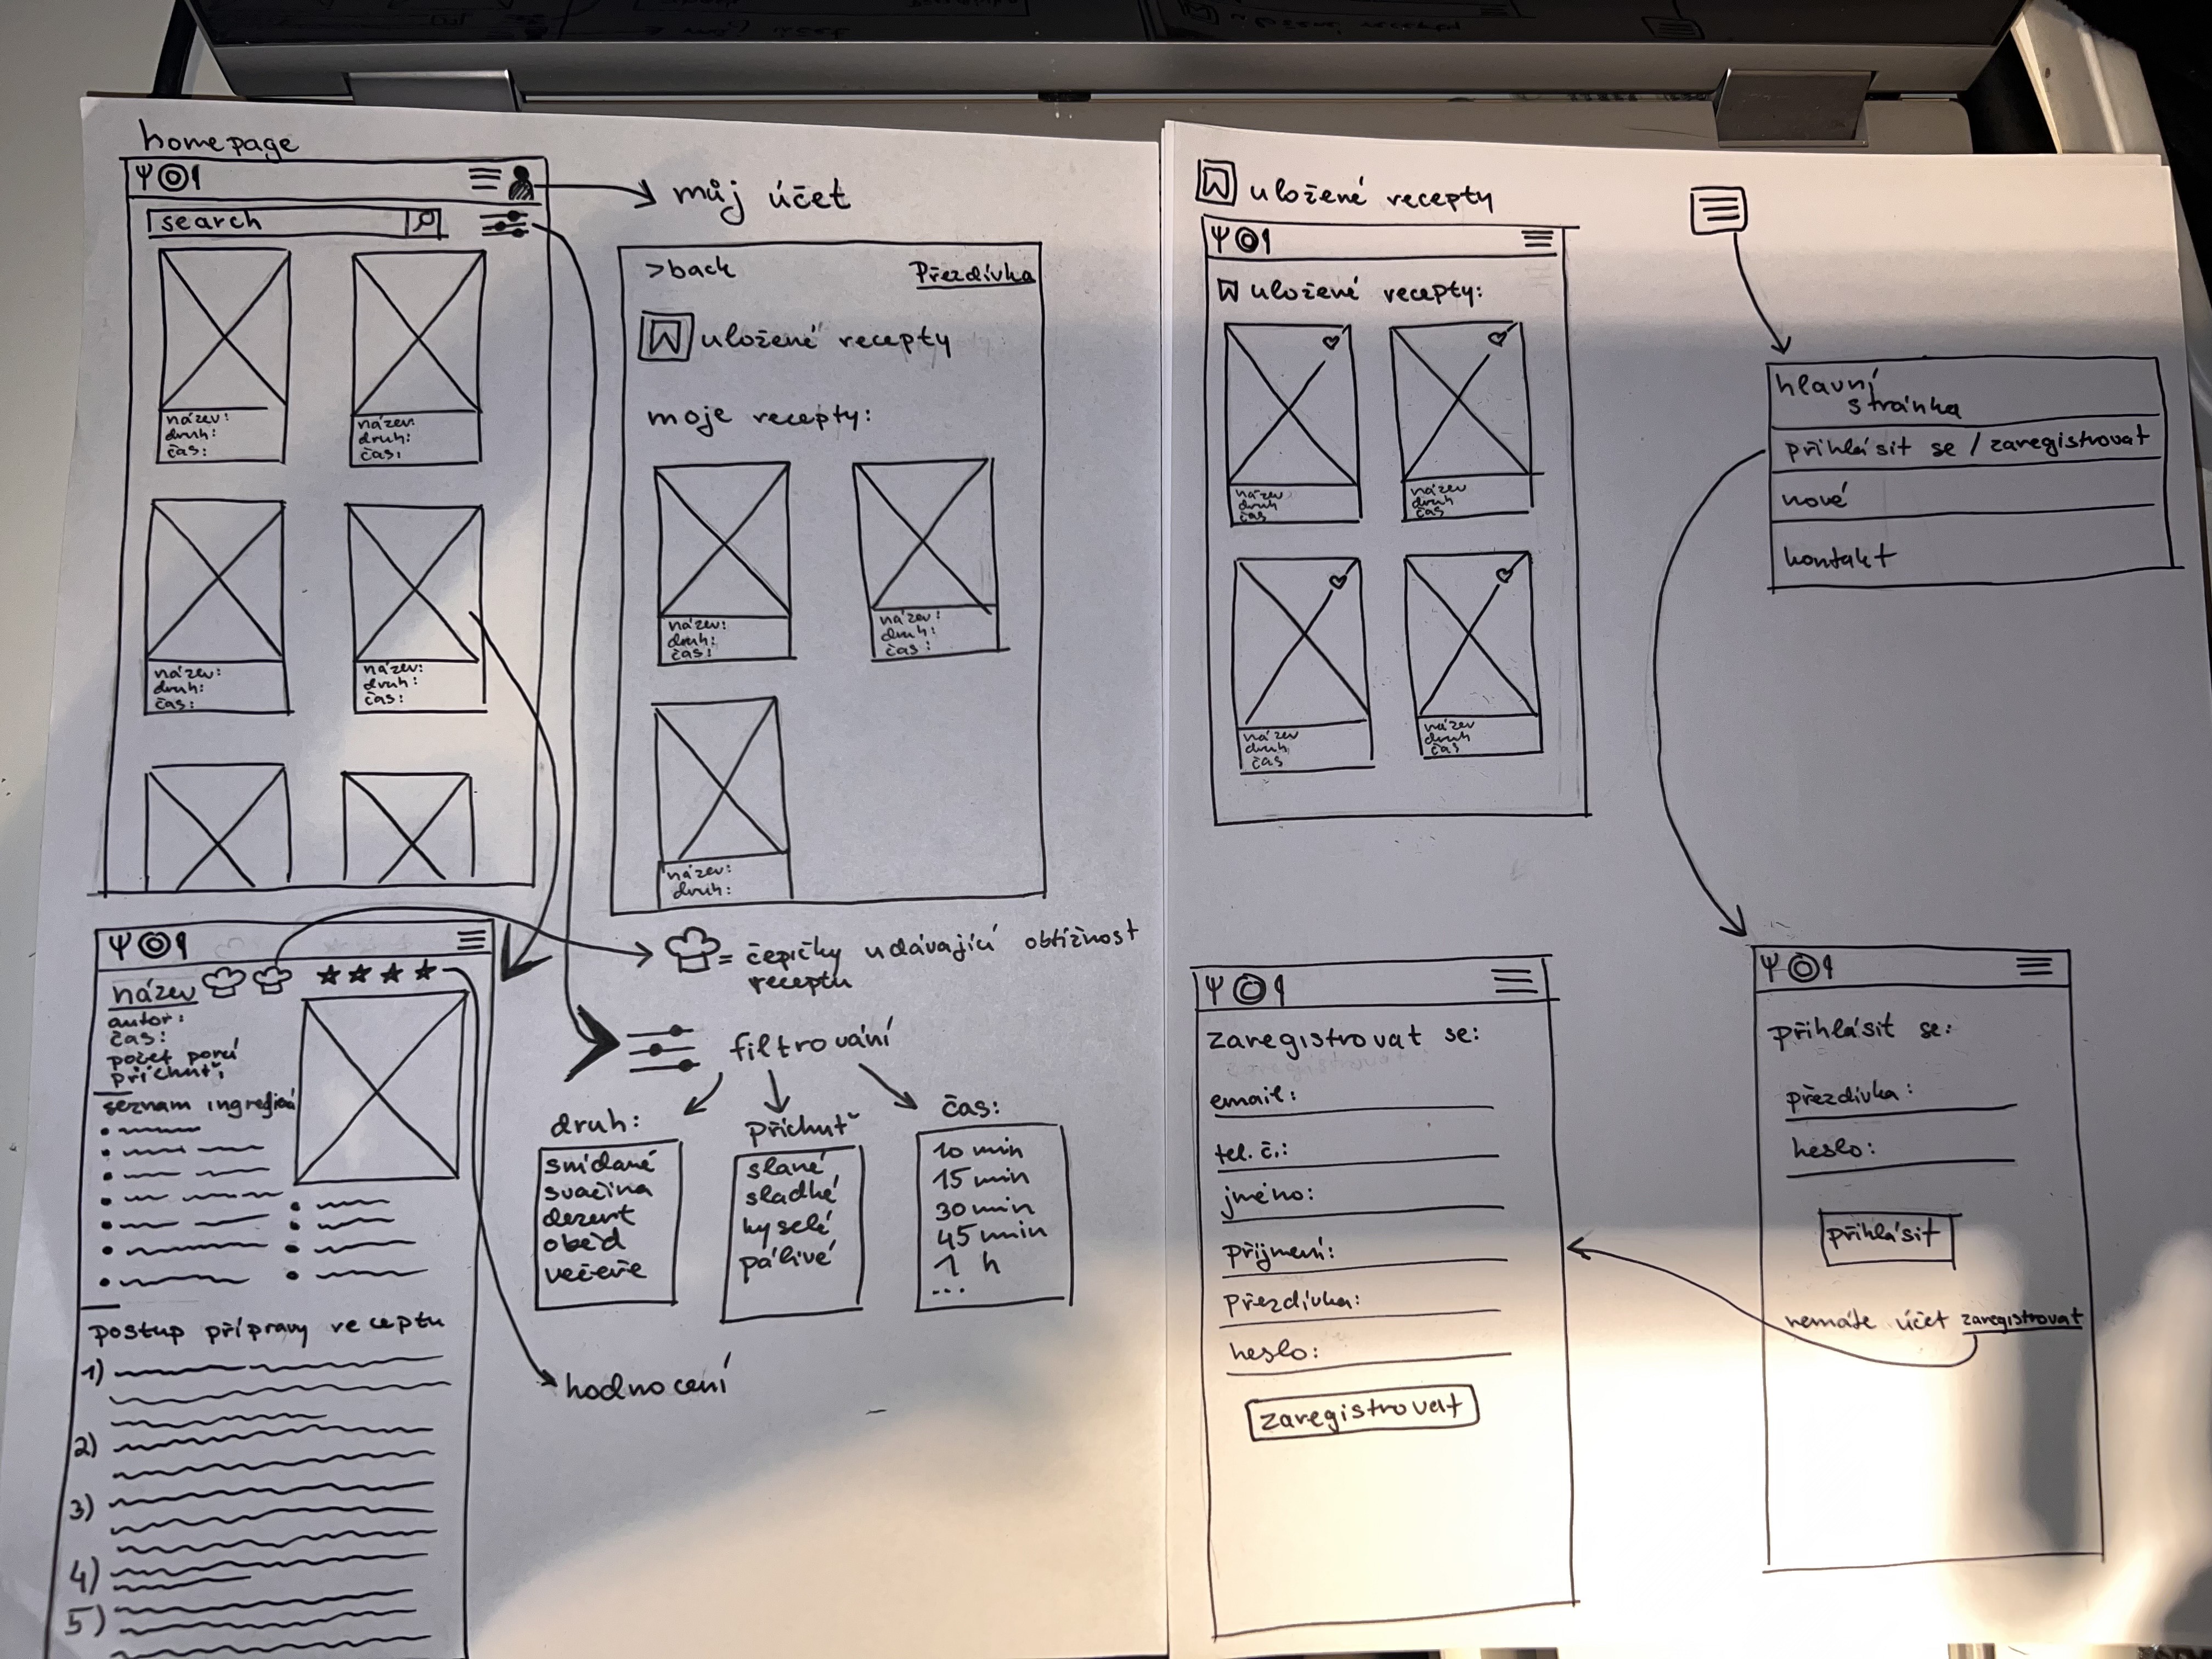 homepage
search
název:
druh:
čas:
název:
druh:
čas:
název:
druh:
čas:
název:
druh:
čas:
můj účet
>back
Přezdívka
uložené recepty
moje recepty:
název:
druh:
čas:
název:
druh:
čas:
název:
druh:
název
autor:
čas:
počet porcí
příchutí
seznam ingrediencí
postup přípravy receptu
1)
2)
3)
4)
5)
= čepičky udávající obtížnost
receptu
filtrování
druh:
snídaně
svačina
dezert
oběd
večeře
příchuť
slané
sladké
kyselé
pálivé
čas:
10 min
15 min
30 min
45 min
1 h
...
hodnocení
uložené recepty
uložené recepty:
název
druh
čas
název
druh
čas
název
druh
čas
název
druh
čas
hlavní
stránka
přihlásit se / zaregistrovat
nové
kontakt
zaregistrovat se:
email:
tel. č.:
jméno:
příjmení:
Přezdívka:
heslo:
zaregistrovat
přihlásit se:
přezdívka:
heslo:
přihlásit
nemáte účet zaregistrovat